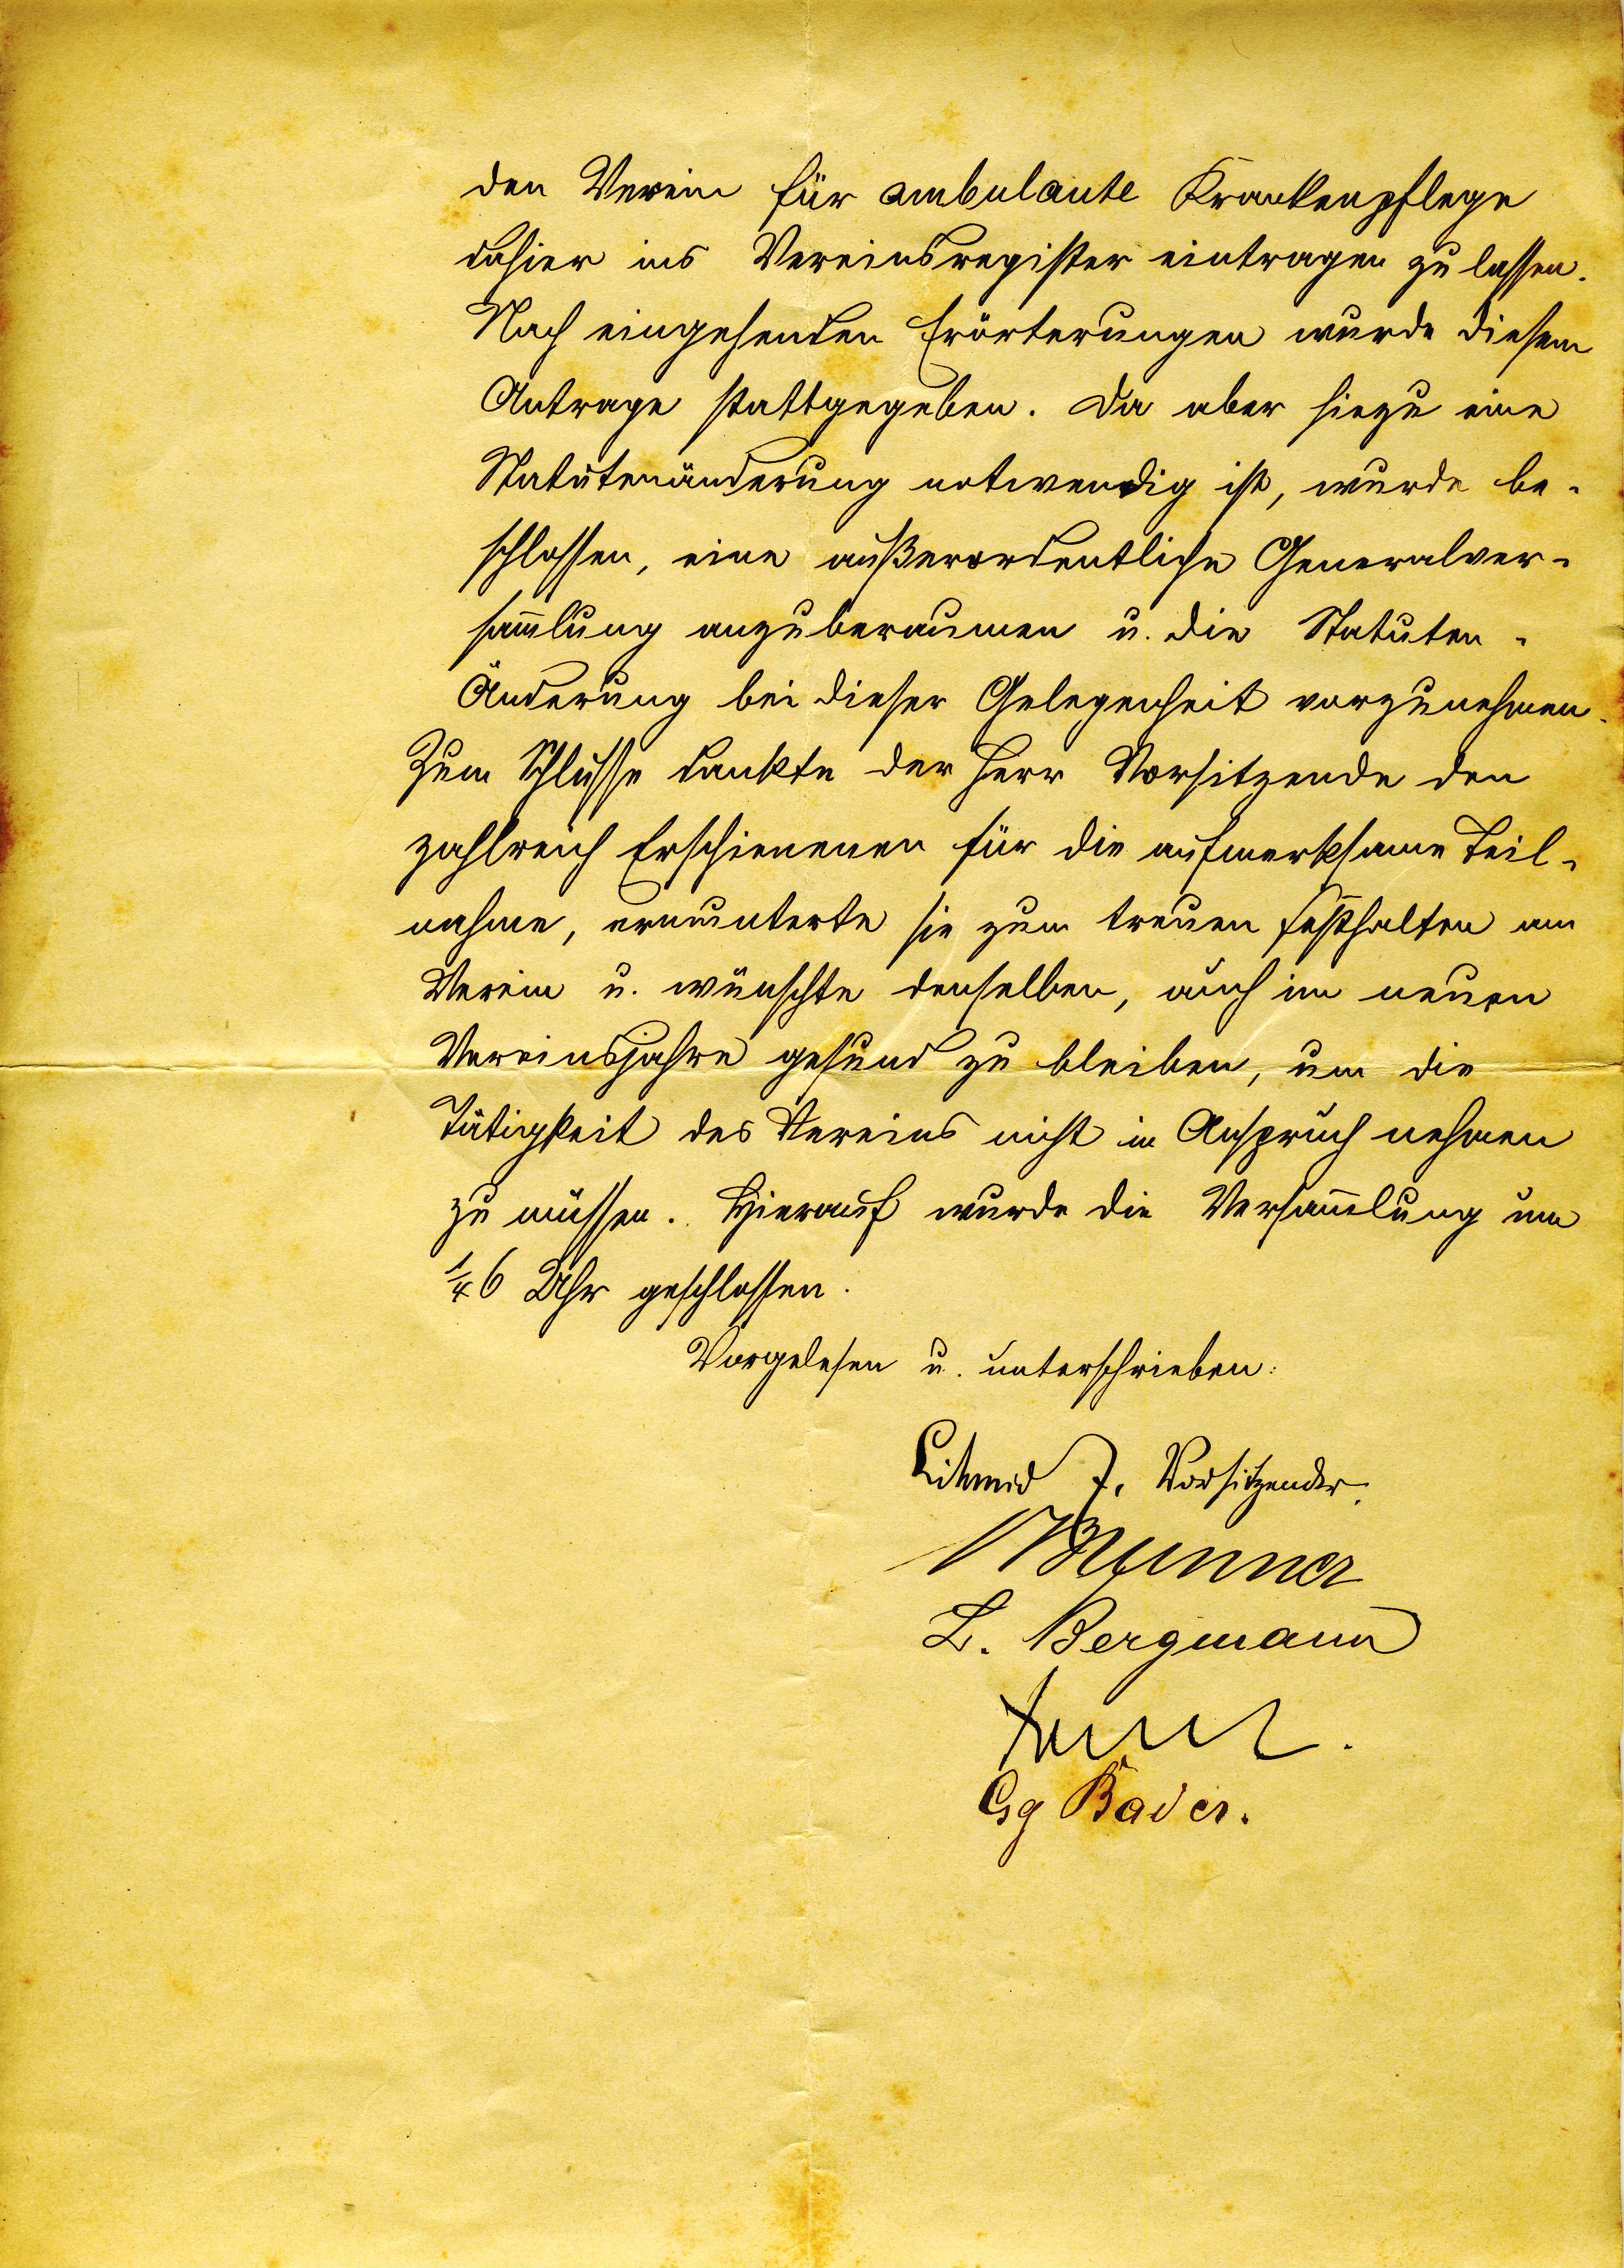 den Verein für ambulante Krankenpflege
dahier ins Vereinsregister eintragen zu lassen.
Nach eingehenden Erörterungen wurde diesem
Antrage stattgegeben. Da aber hiezu eine
Statutenänderung notwendig ist, wurde be-
schlossen, eine außerordentliche Generalver-
sam̅lung anzuberaumen u. die Statuten-
Änderung bei dieser Gelegenheit vorzunehmen.
Zum Schlusse dankte der Herr Vorsitzende den
zahlreich Erschienenen für die aufmerksame Teil-
nahme, ermunterte sie zum treuen Festhalten am
Verein u. wünschte denselben, auch im neuen
Vereinsjahre gesund zu bleiben, um die
Tätigkeit des Vereins nicht in Anspruch nehmen
zu müssen. Hierauf wurde die Versam̅lung um
1/4 6 Uhr geschlossen.
Vorgelesen u. unterschrieben:
I. Vorsitzender.
Brunner
L. Bergmann
Gg Bader.